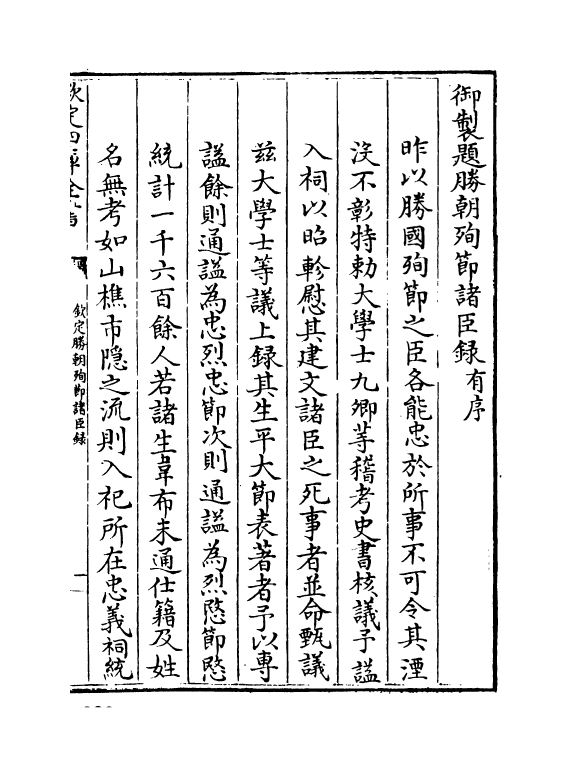 御製題勝朝殉節諸臣録有序
昨以勝國殉節之臣各能忠於所事不可令其湮
沒不彰特勅大學士九卿等稽考史書核議予諡
入祠以昭軫慰其建文諸臣之死事者並命甄議
兹大學士等議上録其生平大節表著者予以專
諡餘則通諡為忠烈忠節次則通諡為烈愍節愍
統計一千六百餘人若諸生韋布未通仕籍及姓
名無考如山樵市隐之流則入祀所在忠義祠統
欽定四庫全書
欽定勝朝殉節諸臣録
一